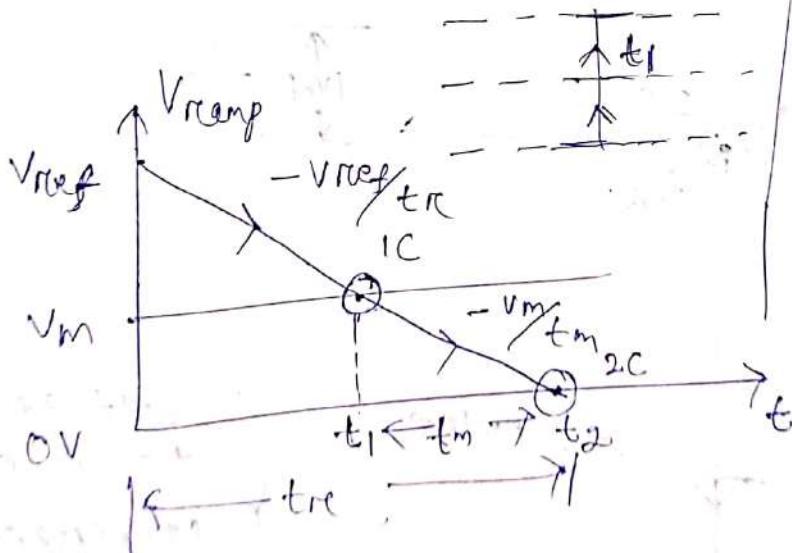 t1
Vramp
Vref
-Vref/tr
1C
Vm
-Vm/tm
2C
0V
t1
tm
t2
t
tr